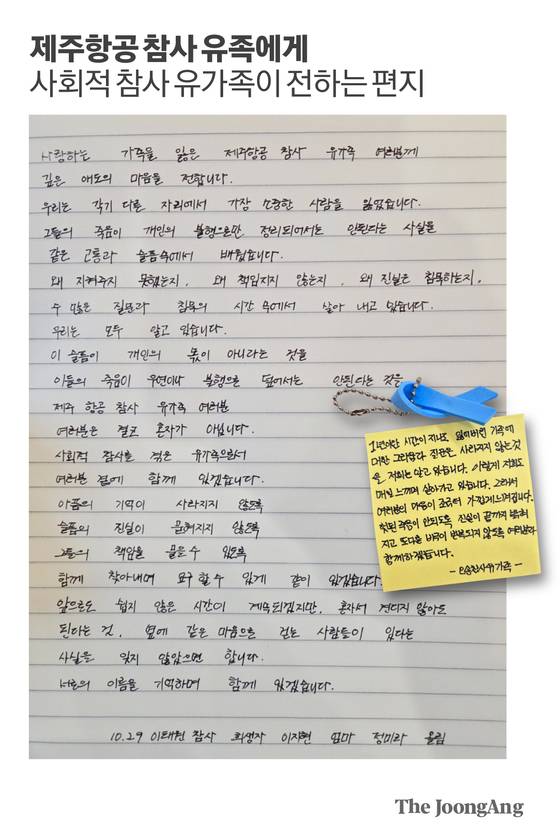 제주항공 참사 유족에게
사회적 참사 유가족이 전하는 편지
사랑하는 가족을 잃은 제주항공 참사 유가족 여러분께
깊은 애도의 마음을 전합니다.
우리는 각기 다른 자리에서 가장 소중한 사람을 잃었습니다.
그들의 죽음이 개인의 불행으로만 정리되어서는 안된다는 사실을
같은 고통과 슬픔속에서 배웠습니다.
왜 지켜주지 못했는지, 왜 책임지지 않는지, 왜 진실은 침묵하는지,
수 많은 질문과 침묵의 시간 속에서 살아 내고 있습니다.
우리는 모두 알고 있습니다.
이 슬픔이 개인의 몫이 아니라는 것을
이들의 죽음이 우연이나 불행으로 덮어서는 안된다는 것을
제주 항공 참사 유가족 여러분
여러분은 결코 혼자가 아닙니다.
사회적 참사를 겪은 유가족으로서
여러분 곁에 함께 있겠습니다.
아픔의 기억이 사라지지 않도록
슬픔의 진실이 묻혀지지 않도록
그들의 책임을 물을 수 있도록
함께 찾아내며 요구 할 수 있게 같이 있겠습니다.
앞으로도 쉽지 않은 시간이 계속되겠지만, 혼자서 견디지 않아도
된다는 것, 옆에 같은 마음으로 걷는 사람들이 있다는
사실을 잊지 않았으면 합니다.
서로의 이름을 기억하며 함께 있겠습니다.
10.29 이태원 참사 희생자 이지현 엄마 정미라 올림
1년이란 시간이 지나도 잃어버린 가족에
대한 그리움과 진실은 사라지지 않는 것
을 저희는 알고 있습니다. 이렇게 저희도
매일 느끼며 살아가고 있습니다. 그래서
여러분의 마음이 조금더 가깝게 느껴집니다.
헛된 죽음이 안되도록 진실이 끝까지 밝혀
지고 또다른 비극이 반복되지 않도록 여러분과
함께하겠습니다.
- 오송참사유가족 -
The JoongAng